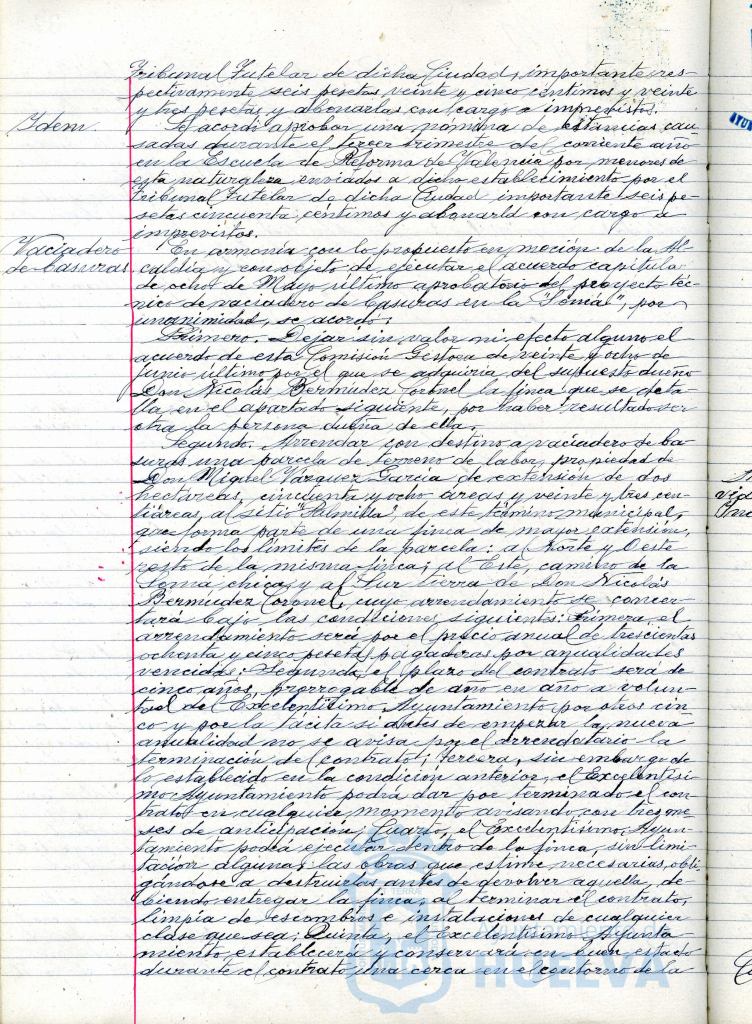 Tribunal Tutelar de dicha Ciudad, importante res-
pectivamente seis pesetas veinte y cinco céntimos y veinte
y tres pesetas y abonarlas con cargo a imprevistos.
Idem.
Se acordó aprobar una nómina de estancias cau-
sadas durante el tercer trimestre del corriente año
en la Escuela de Reforma de Valencia por menores de
esta naturaleza enviados a dicho establecimiento por el
Tribunal Tutelar de dicha Ciudad importante seis pe-
setas cincuenta céntimos y abonarla con cargo a
imprevistos.
Vaciadero
de basuras.
En armonía con lo propuesto en moción de la Al-
caldía y con objeto de ejecutar el acuerdo capitular
de ocho de Mayo último aprobatorio del proyecto téc-
nico de vaciadero de basuras en la "", por
unanimidad, se acordó:
Primero. Dejar sin valor ni efecto alguno el
acuerdo de esta Comisión Gestora de veinte y ocho de
Junio último por el que se adquiría del supuesto dueño
Don Nicolás Bermudez Coronel la finca que se deta-
lla en el apartado siguiente, por haber resultado ser
otra la persona dueña de ella.
Segundo. Arrendar con destino a vaciadero de ba-
suras una parcela de terreno de labor, propiedad de
Don Miguel Vázquez García de extensión de dos
hectáreas, cincuenta y ocho áreas y veinte y tres cen-
tiáreas, al sitio "Almilla", de este término municipal,
que forma parte de una finca de mayor extensión,
siendo los límites de la parcela: al Norte y Oeste
resto de la misma finca; al Este, camino de la
Loma chica; y al Sur tierra de Don Nicolás
Bermudez Coronel, cuyo arrendamiento se concer-
tará bajo las condiciones siguientes: Primera, el
arrendamiento será por el precio anual de trescientas
ochenta y cinco pesetas pagaderas por anualidades
vencidas; Segunda, el plazo del contrato será de
cinco años, prorrogable de año en año a volun-
tad del Excelentísimo Ayuntamiento por otros cin-
co y por la tácita si antes de empezar la nueva
anualidad no se avisa por el arrendatario la
terminación del contrato; tercera, sin embargo de
lo establecido en la condición anterior, el Excelentísi-
mo Ayuntamiento podrá dar por terminado el con-
trato en cualquier momento avisando con tres me-
ses de anticipación; Cuarto, el Excelentísimo Ayun-
tamiento podrá ejecutar dentro de la finca, sin limi-
tación alguna, las obras que estime necesarias, obli-
gándose a destruirlas antes de devolver aquella, de-
biendo entregar la finca, al terminar el contrato,
limpia de escombros e instalaciones de cualquier
clase que sea; Quinta, el Excelentísimo Ayunta-
miento establecerá y conservará en buen estado
durante el contrato una cerca en el contorno de la
Ayuntamiento de
HUELVA